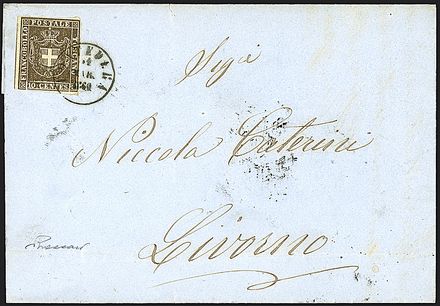 FRANCOBOLLO
POSTALE
TOSCANO
10 CENTES
60
Sig.r
Niccola Caterini
Livorno